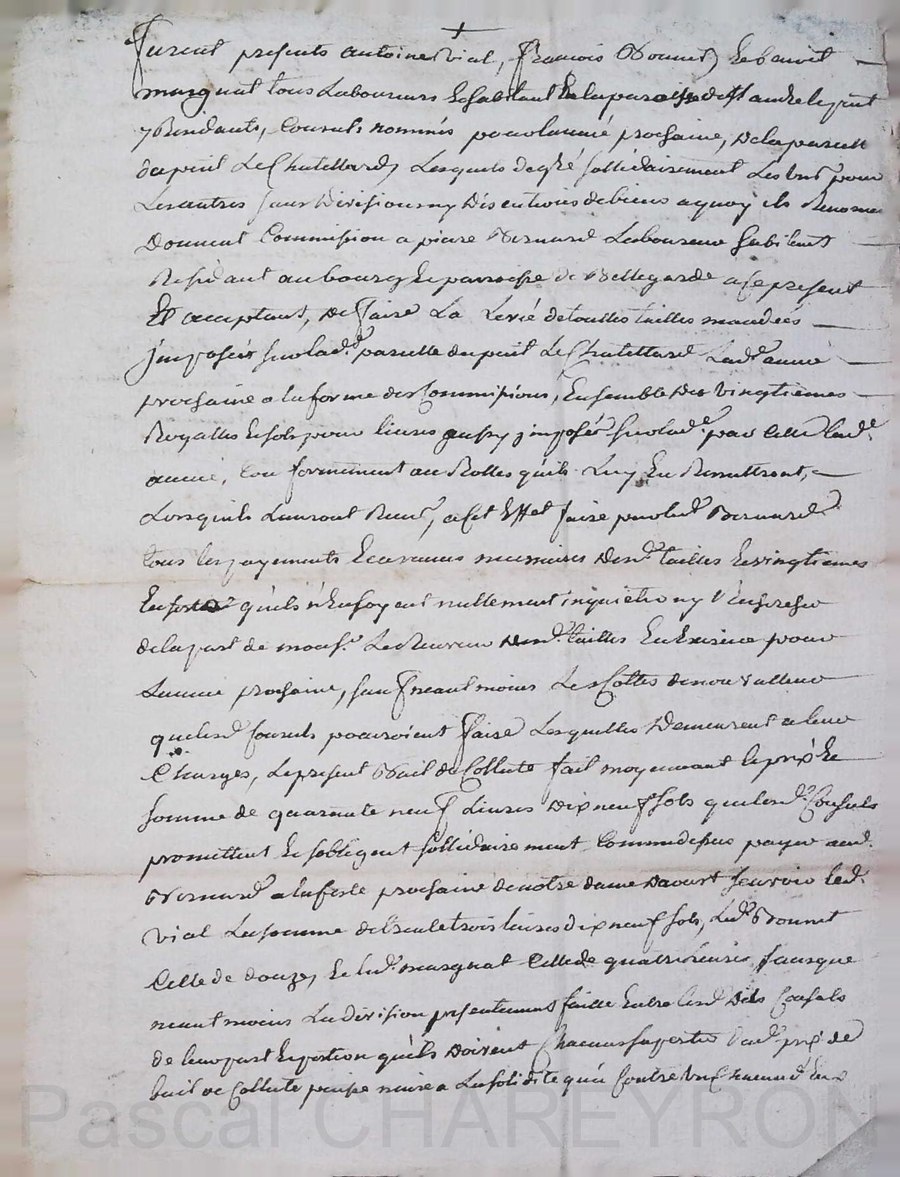 +
furent presents antoine vial, françois Bonnet, & benoit
marguat tous Laboureurs & habitant En la paroisse de St andre le puit
y Residants, Consuls nommés pour lannée prochaine, de la parcelle
du puit Le Chatellard, Lesquels de gré sollidairement Les uns pour
Les autres sans division ny discution de biens a quoy ils Renoncent
Donnent Commission a pierre Bernard Laboureur habitant
Residant au bourg & parroisse de Bellegarde a ce present
Et acceptant, de faire La Levée de touttes tailles mandées
jmposées sur lad. parcelle du puit Le Chatellard Lad. année
prochaine a la forme des Commissions, Ensemble des vingtiemes
Royalles & sols pour livres aussy jmposés sur lad. pour Cette lad.
année, Conformement au Rolles quils Luy En Remettront,
Lorsquils Lauront Reçus, a Cet Effet faire par led. Bernard
tous les payements & avances necessaires desd. tailles & vingtiemes
En sorte qu'ils n'En soyent nullement inquietés ny
de la part de mons. Le Receveur desd. tailles En Exercice pour
Lannée prochaine, sauf neantmoins Les Cottes de non valleur
que lesd. Consuls pourroient faire Lesquelles Demeurent a leur
Charges, Le present Bail de Collecte fait moyennant le prix &
somme de quarante neuf Livres Dix neuf sols que lesd. Consuls
promettent & sobligent sollidairement Comme dessus payer aud.
Bernard a la feste prochaine de notre dame Daoust sçavoir led.
vial La somme de trente trois livres dix neuf sols, Led. Bonnet
Celle de douze, & led. marguat Celle de quatre livres, sans que
neantmoins La division presentement faitte Entre lesd. Consuls
de leur part & portion quils Doivent Chacun supporter dud. prix de
bail de Collecte puisse nuire a La solidité qu'a Contre un Chacun d'Eux
Pascal CHAREYRON